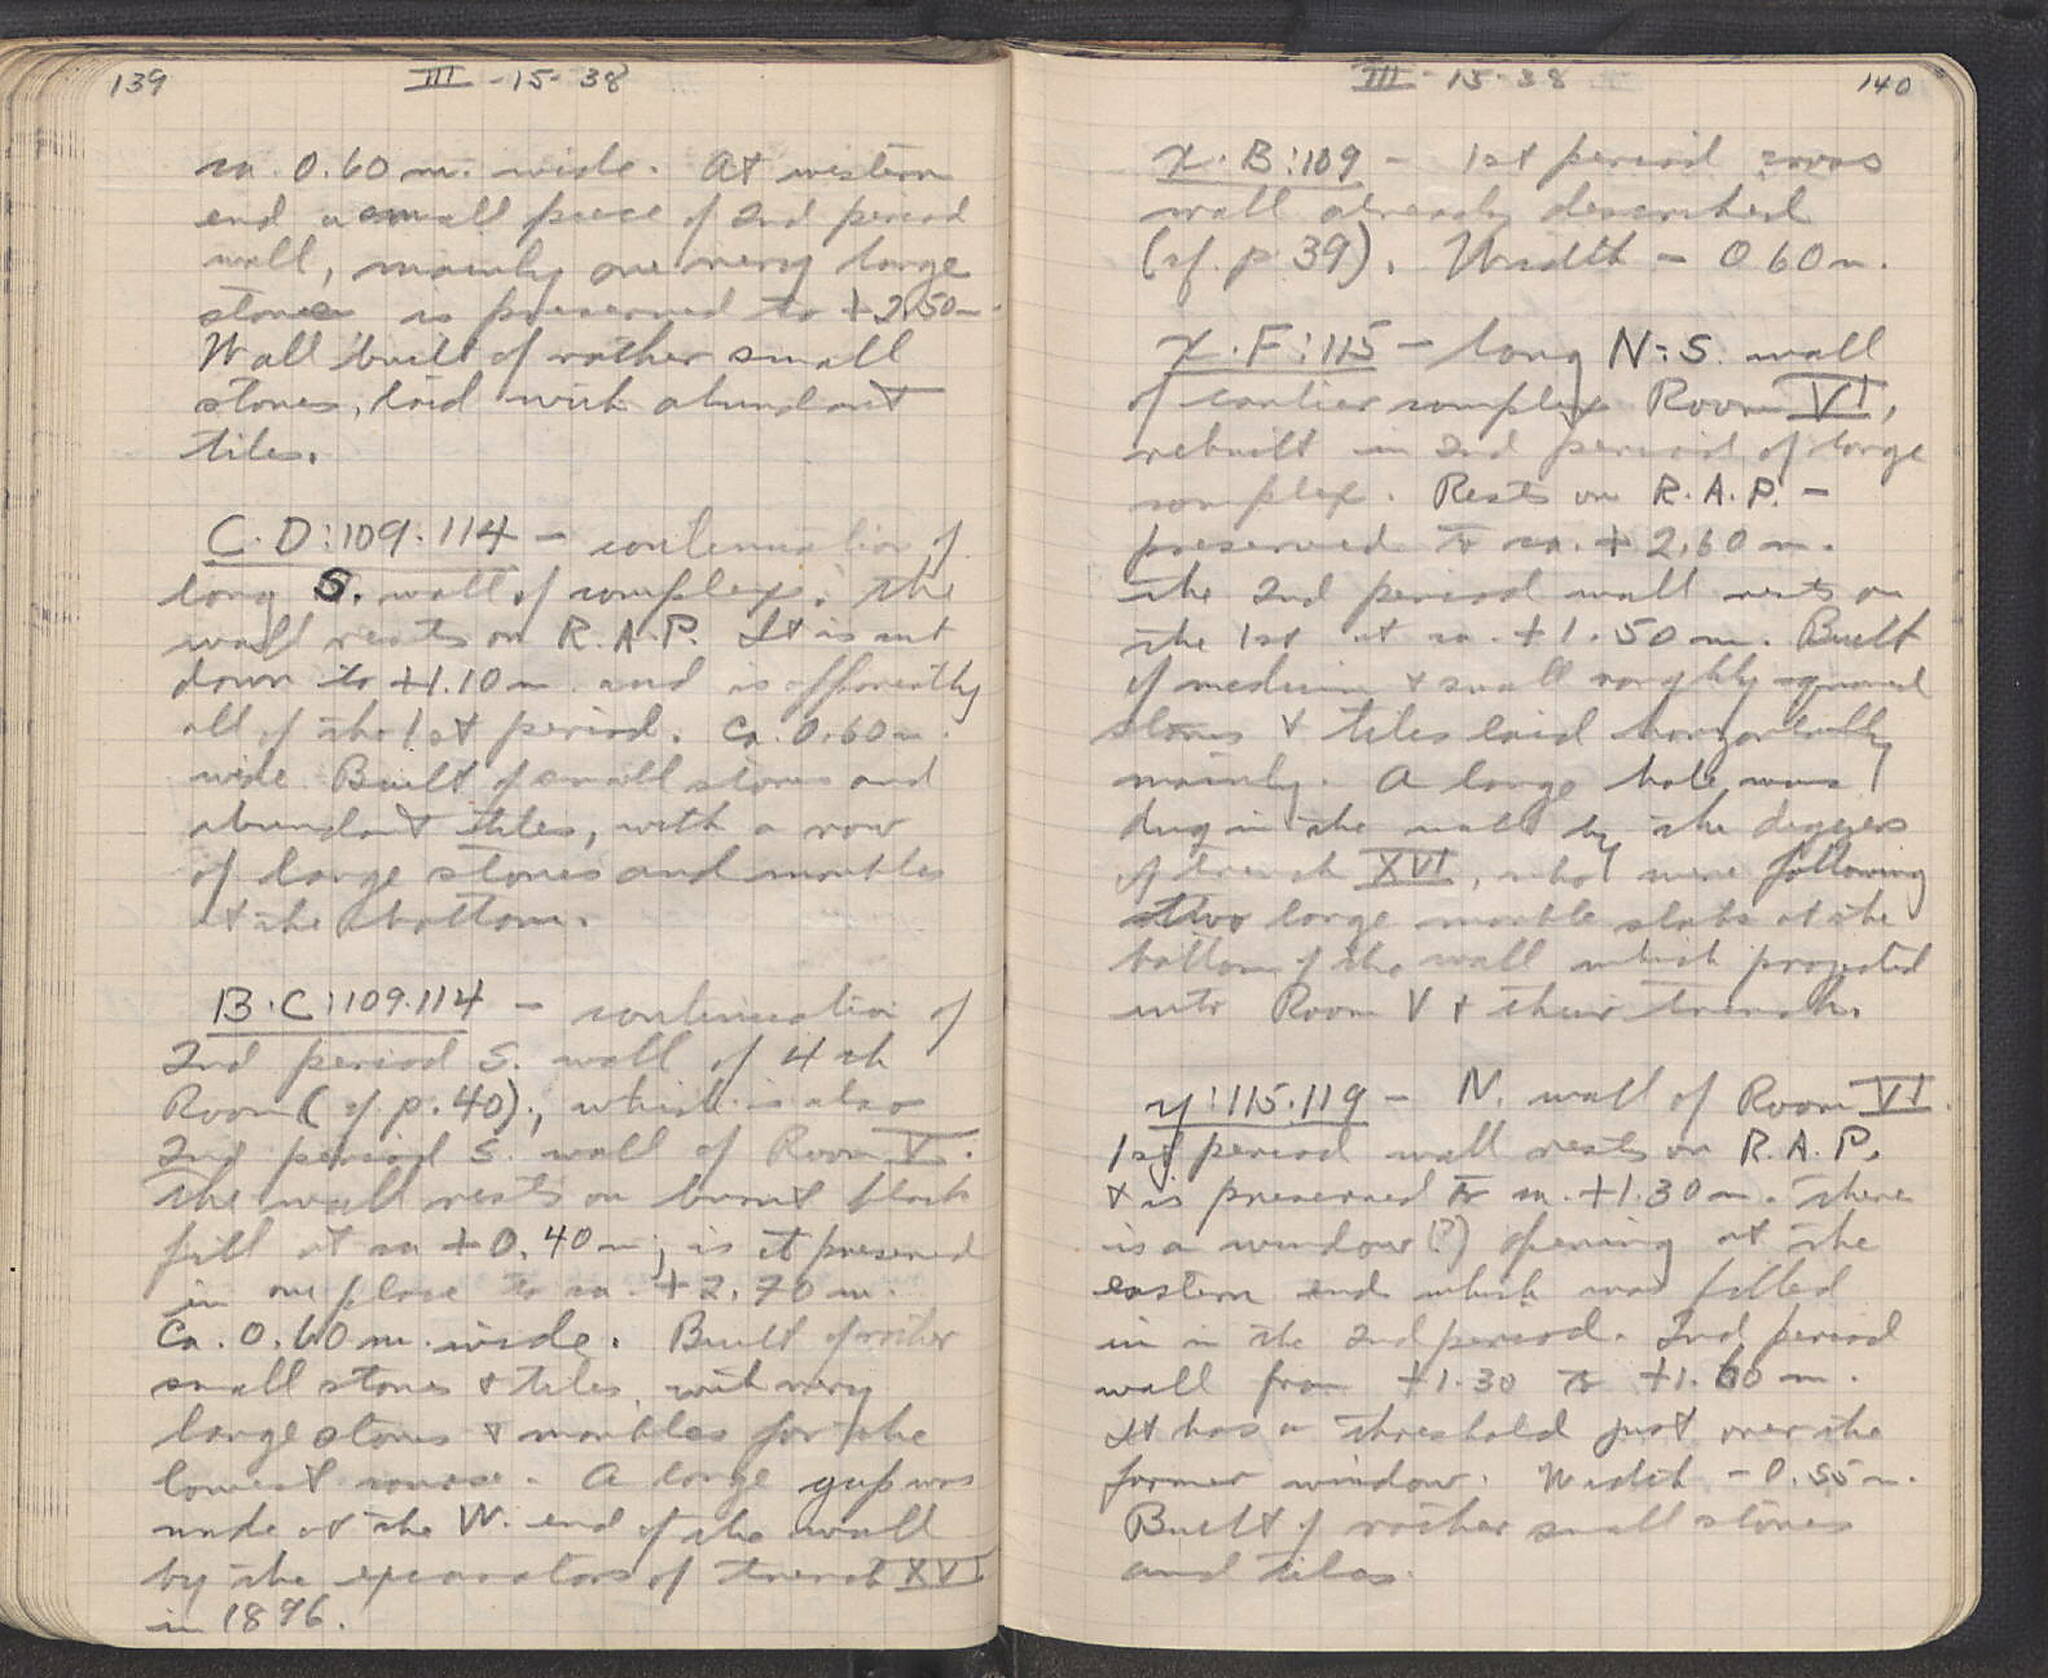 139
III - 15 - 38
ca. 0.60 m. wide. At western
end a small piece of 2nd period
wall, mainly one very large
stone is preserved to +2.50 m.
Wall built of rather small
stones, laid with abundant
tiles.
C-D:109-114 - continuation of
long S. wall of complex. The
wall rests on R.A.P. It is cut
down to +1.10 m and is apparently
all of the 1st period. Ca. 0.60 m.
wide. Built of small stones and
abundant tiles, with a row
of large stones and marbles
at the bottom.
B-C:109-114 - continuation of
2nd period S. wall of 4th
Room (cf. p. 40), which is also
2nd period S. wall of Room V.
The wall rests on burnt black
fill at ca +0.40 m; is it preserved
in one place to ca. +2.70 m.
Ca. 0.60 m. wide. Built of rather
small stones & tiles, with very
large stones & marbles for the
lowest course. A large gap was
made at the W. end of the wall
by the excavators of trench XVI
in 1896.
III - 15 - 38
140
X-B:109 - 1st period cross
wall already described
(cf. p 39). Width - 0.60 m.
X-F:115 - long N-S. wall
of earlier complex Room VI,
rebuilt in 2nd period of large
complex. Rests on R.A.P. -
preserved to ca. +2.60 m.
The 2nd period wall rests on
the 1st at ca. +1.50 m. Built
of medium & small roughly squared
stones & tiles laid horizontally
mainly. A large hole was
dug in the wall by the diggers
of trench XVI, who were following
two large marble slabs at the
bottom of the wall which projected
into Room V & their trench.
y:115-119 - N. wall of Room VI.
1st period wall rests on R.A.P.
& is preserved to ca. +1.30 m. There
is a window (?) opening at the
eastern end which was filled
in in the 2nd period. 2nd period
wall from +1.30 to +1.60 m.
It has a threshold just over the
former window. Width - 0.55 m.
Built of rather small stones
and tiles.